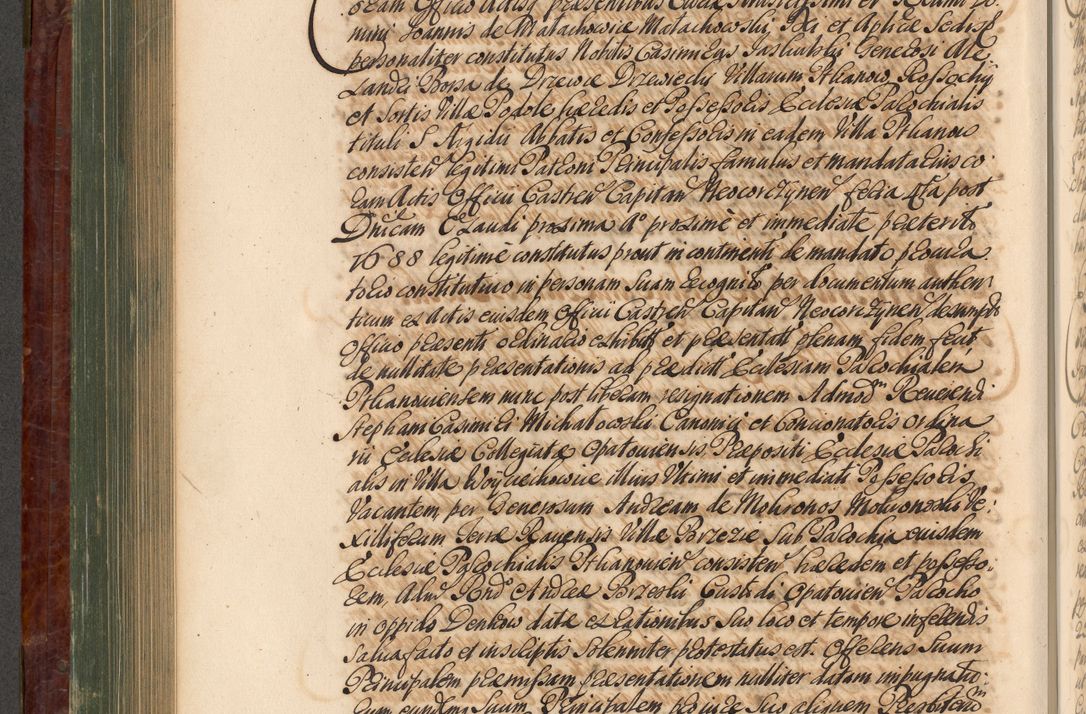 coram Officio Actisq praesentibus Cuiae Illustrissimi et Rndmi Do:
mini Joannis de Małachowice Małachowski, Dei et Aplicae Sedis
personaliter constitutus Nobilis Casimirus Jasliubsky Generosi Ale
xandri Borsa de Drzewice Drzewiecky Villarum Ptkanow, Rossochy
et Sortis Villae Podole haeredis et Possessoris Ecclesiae Parochialis
tituli S Aegidii Abbatis et Confessoris in eadem Villa Ptkanow
consisten legitimi Patroni Principalis famulus et mandatarius co
ram Actis Officii Castren Capitan Neocorczynen feria 4ta post
Dnicam Exaudi proxima Ao proxime et immediate praeterito
1688 legitime constitutus prout in continenti de mandato procura
torio constitutivo in personam Suam recognito per documentum authen:
ticum ex Actis eiusdem Officii Castren Capitan Neocorczynen desumpt
Officio praesenti ordinario exhibit et praesentat plenam fidem fecit
de nullitate praesentationis ad praedict Ecclesiam Parochialem
Ptkanouiensem nunc post liberam resignationem Admod Reuerendi
Stephani Casimiri Michałowski Canonici et Concionatoris ordina
rii Ecclesiae Collegiatae Opatouiensis Praepositi Ecclesiae Parochi
alis in Villa Woyciechowice illius Vltimi et immediati Possessoris
Vacantem per Generosum Andream de Mokronos Mokronoski Ve:
xilliferum Terrae Rauensis Villae Brzezie Sub Parochia euisdem
Ecclesiae Parochialis Ptkanouien consisten haeredem et possesso:
rem, Alm Rnd Andreae Brzeski Custodi Opatouien Parocho
in oppido Denkow datae ex rationibus Suo loco et tempore inferendis
Salua facto et inscriptis Solenniter protestatus est. Offerens Suum
Principalem praemissam praesentationem nulliter datam impugnatu:
rum eundmq Suum Principalem pro iure Suo aliquem Presbiterum